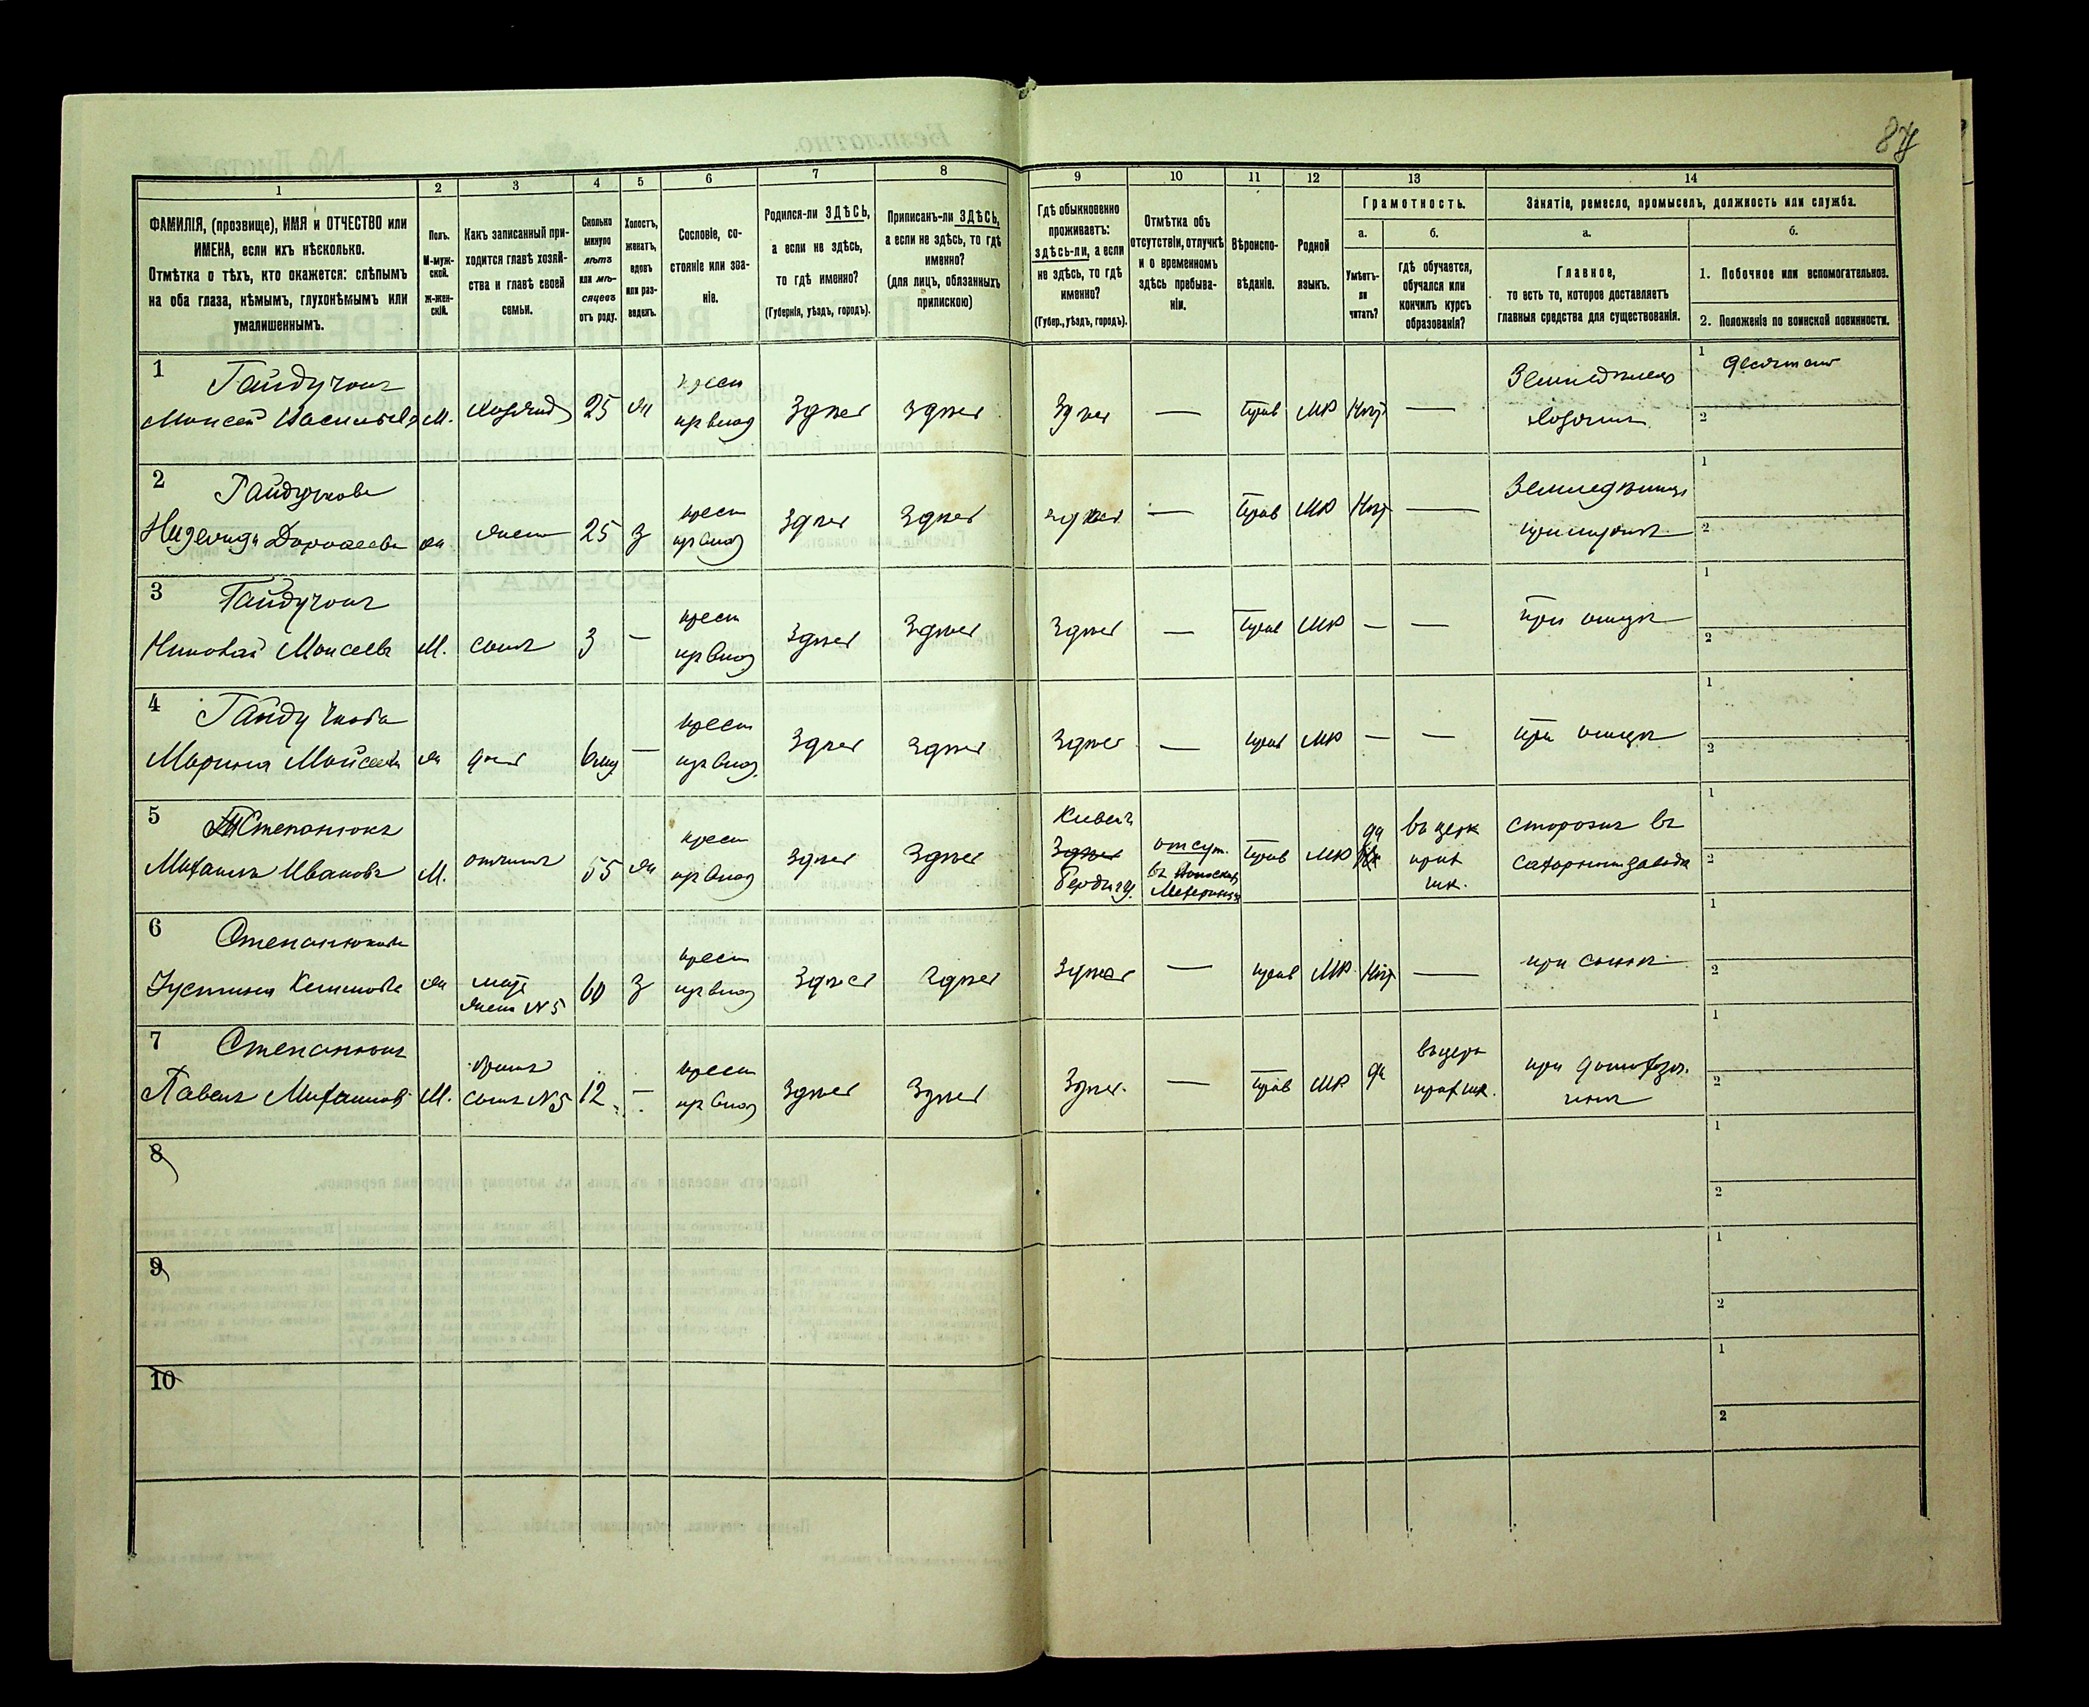 87
1
2
3
4
5
6
7
8
9
10
11
12
13
14
ФАМИЛІЯ, (прозвище), ИМЯ и ОТЧЕСТВО или
ИМЕНА, если ихъ нѣсколько.
Отмѣтка о тѣхъ, кто окажется: слѣпымъ
на оба глаза, нѣмымъ, глухонѣмымъ или
умалишеннымъ.
Полъ.
М-муж-
ской.
ж-жен-
скій.
Какъ записанный при-
ходится главѣ хозяй-
ства и главѣ своей
семьи.
Сколько
минуло
лѣтъ
или мѣ-
сяцевъ
отъ роду.
Холостъ,
женатъ,
вдовъ
или раз-
веденъ.
Сословіе, со-
стояніе или зва-
ніе.
Родился-ли ЗДѢСЬ,
а если не здѣсь,
то гдѣ именно?
(Губернія, уѣздъ, городъ).
Приписанъ-ли ЗДѢСЬ,
а если не здѣсь, то гдѣ
именно?
(для лицъ, обязанныхъ
припискою)
Гдѣ обыкновенно
проживаетъ:
здѣсь-ли, а если
не здѣсь, то гдѣ
именно?
(Губер., уѣздъ, городъ).
Отмѣтка объ
отсутствіи, отлучкѣ
и о временномъ
здѣсь пребыва-
ніи.
Вѣроиспо-
вѣданіе.
Родной
языкъ.
Грамотность.
а.
Умѣетъ-
ли
читать?
б.
гдѣ обучается,
обучался или
кончилъ курсъ
образованія?
Занятіе, ремесло, промыселъ, должность или служба.
а.
Главное,
то есть то, которое доставляетъ
главныя средства для существованія.
б.
1. Побочное или вспомогательное.
2. Положеніе по воинской повинности.
1
Гайдучокъ
Моисей Васильевъ
М.
25
жн
крест
здѣсь
здѣсь
здѣсь
—
Прав
МР
Нѣт
—
1
2
2
Гайдучкова
25
з
крест
здѣсь
здѣсь
здѣсь
—
Прав
МР
Нѣт
—
1
2
3
Гайдучокъ
Николай Моисеевъ
М.
сынъ
3
—
крест
здѣсь
здѣсь
здѣсь
—
Прав
МР
—
—
при отцѣ
1
2
4
Гайдучкова
Марина Моисеева
доч
—
крест
здѣсь
здѣсь
здѣсь
—
прав
МР
—
—
при отцѣ
1
2
5
Степанюкъ
Михаилъ Ивановъ
М.
отчимъ
55
жн
крест
здѣсь
здѣсь
Киевск
здѣсь
Бердичу.
отсут.
Прав
МР
да
въ церк
прих
шк.
сторожъ въ
сахарномъ заводѣ
1
2
6
Степанюкова
Устинья Климова
мат
№ 5
60
з
крест
здѣсь
здѣсь
здѣсь
—
прав
МР
Нѣт
—
при сынѣ
1
2
7
Степанюкъ
Павелъ Михаиловъ
М.
сынъ № 5
12
—
крест
здѣсь
здѣсь
здѣсь
—
Прав
МР
да
въ церк
прих шк.
1
2
8
1
2
9
1
2
10
1
2